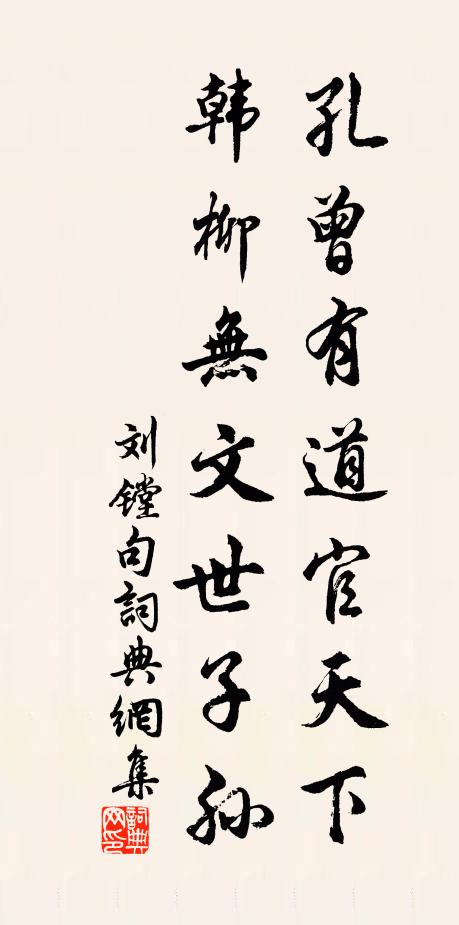 孔曾有道官天下
韩柳無文世子孙
刘镗句詞典網集
詞典網印